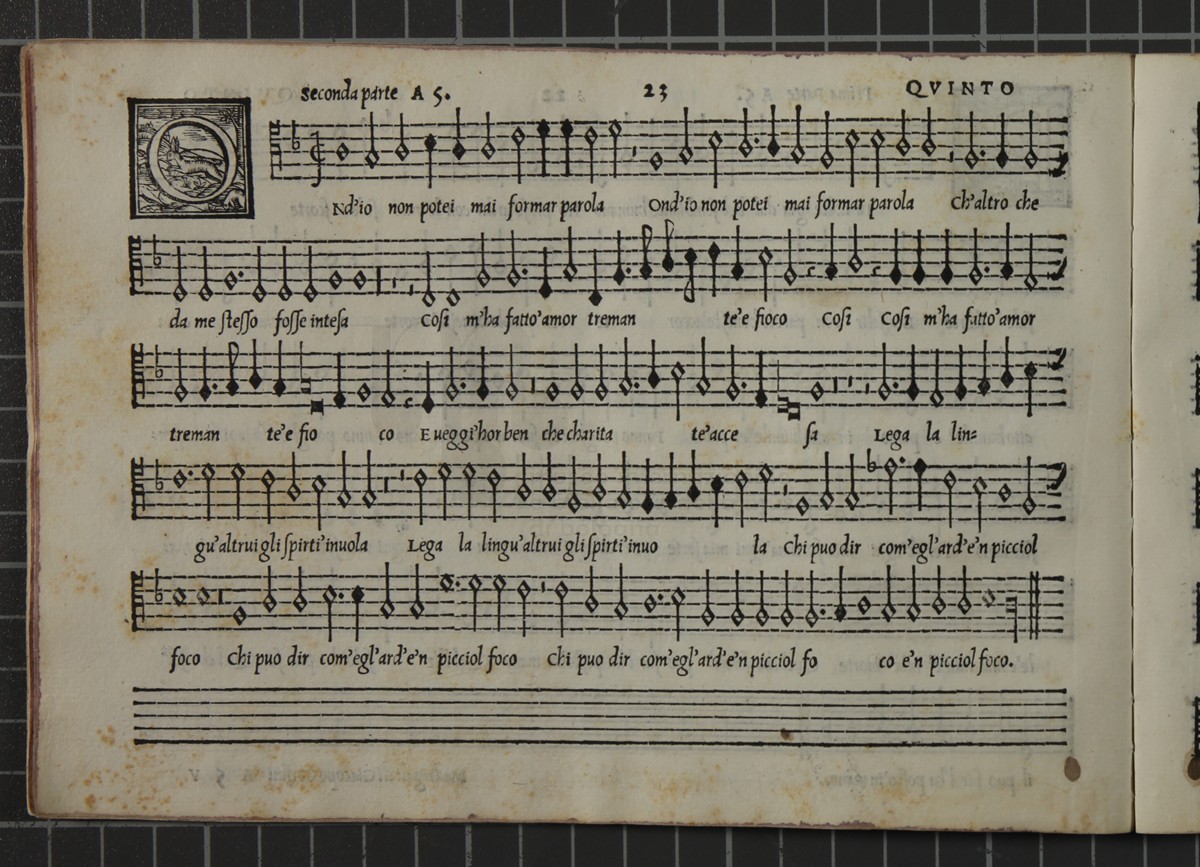 Seconda parte A 5. 23 QVINTO
ONd'io non potei mai formar parola Ond'io non potei mai formar parola Ch'altro che
da me stesso fosse intesa Cosi m'ha fatto'amor treman te'e fioco Cosi Cosi m'ha fatto'amor
treman te'e fio co E ueggi'hor ben che charita te'acce sa Lega la lin=
gu'altrui gli spirti'inuola Lega la lingu'altrui gli spirti'inuo la Chi puo dir com'egl'ard'e'n picciol
foco Chi puo dir com'egl'ard'e'n picciol foco Chi puo dir com'egl'ard'e'n picciol fo co e'n picciol foco.